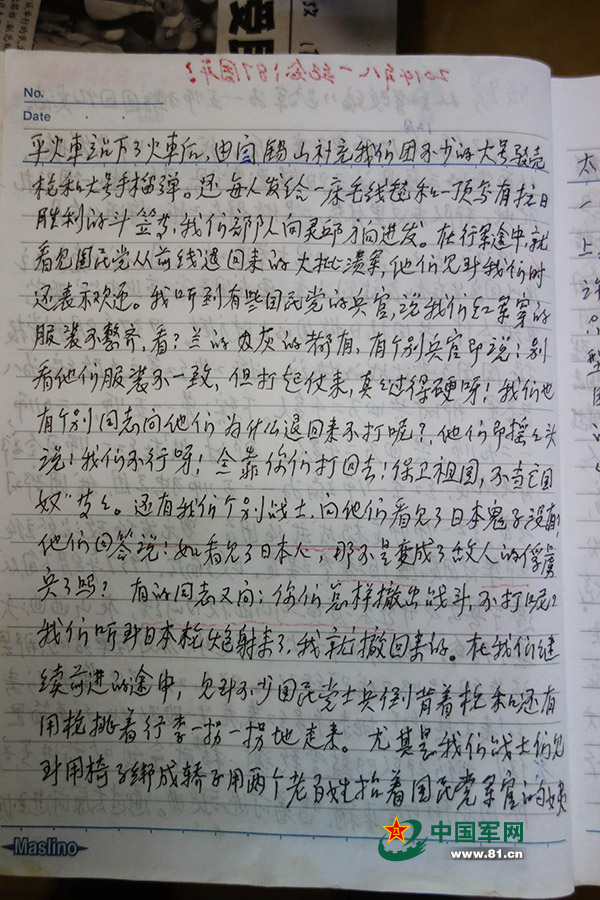 2014年八一纪念(87周年)
No.
Date
平火車站下了火車后,由闫锡山补充我们团不少的大号驳壳
枪和大号手榴弹。还每人发给一床毛线毯和一顶写有抗日
胜利的斗笠,我们部队向灵邱方向进发。在行军途中,就
看见国民党从前线退回来的大批溃军,他们见到我们时
还表示欢迎。我听到有些国民党的兵官,说我们红军穿的
服装不整齐,看?兰的灰灰的都有,有个别兵官即说:别
看他们服装不一致,但打起仗来,真过得硬呀!我们也
有个别同志问他们为什么退回来不打呢?,他们即摇摇头
说!我们不行呀!全靠你们打回去!保卫祖国,不当亡国
奴"等等。还有我们个别战士,问他们看见了日本鬼子没有?
他们回答说:如看见了日本人,那不是变成了敌人的俘虏
兵了吗? 有的同志又问:你们怎样撤出战斗,不打呢?
我们听到日本枪炮射来了,我就撤回来的。在我们继
续前进的途中,见到不少国民党士兵倒背着枪和还有
用枪挑着行李一拐一拐地走来。尤其是我们战士们见
到用椅子绑成轿子用两个老百姓抬着国民党军官的姨
Maslino
中国军网
www.81.cn
受
太
一
上